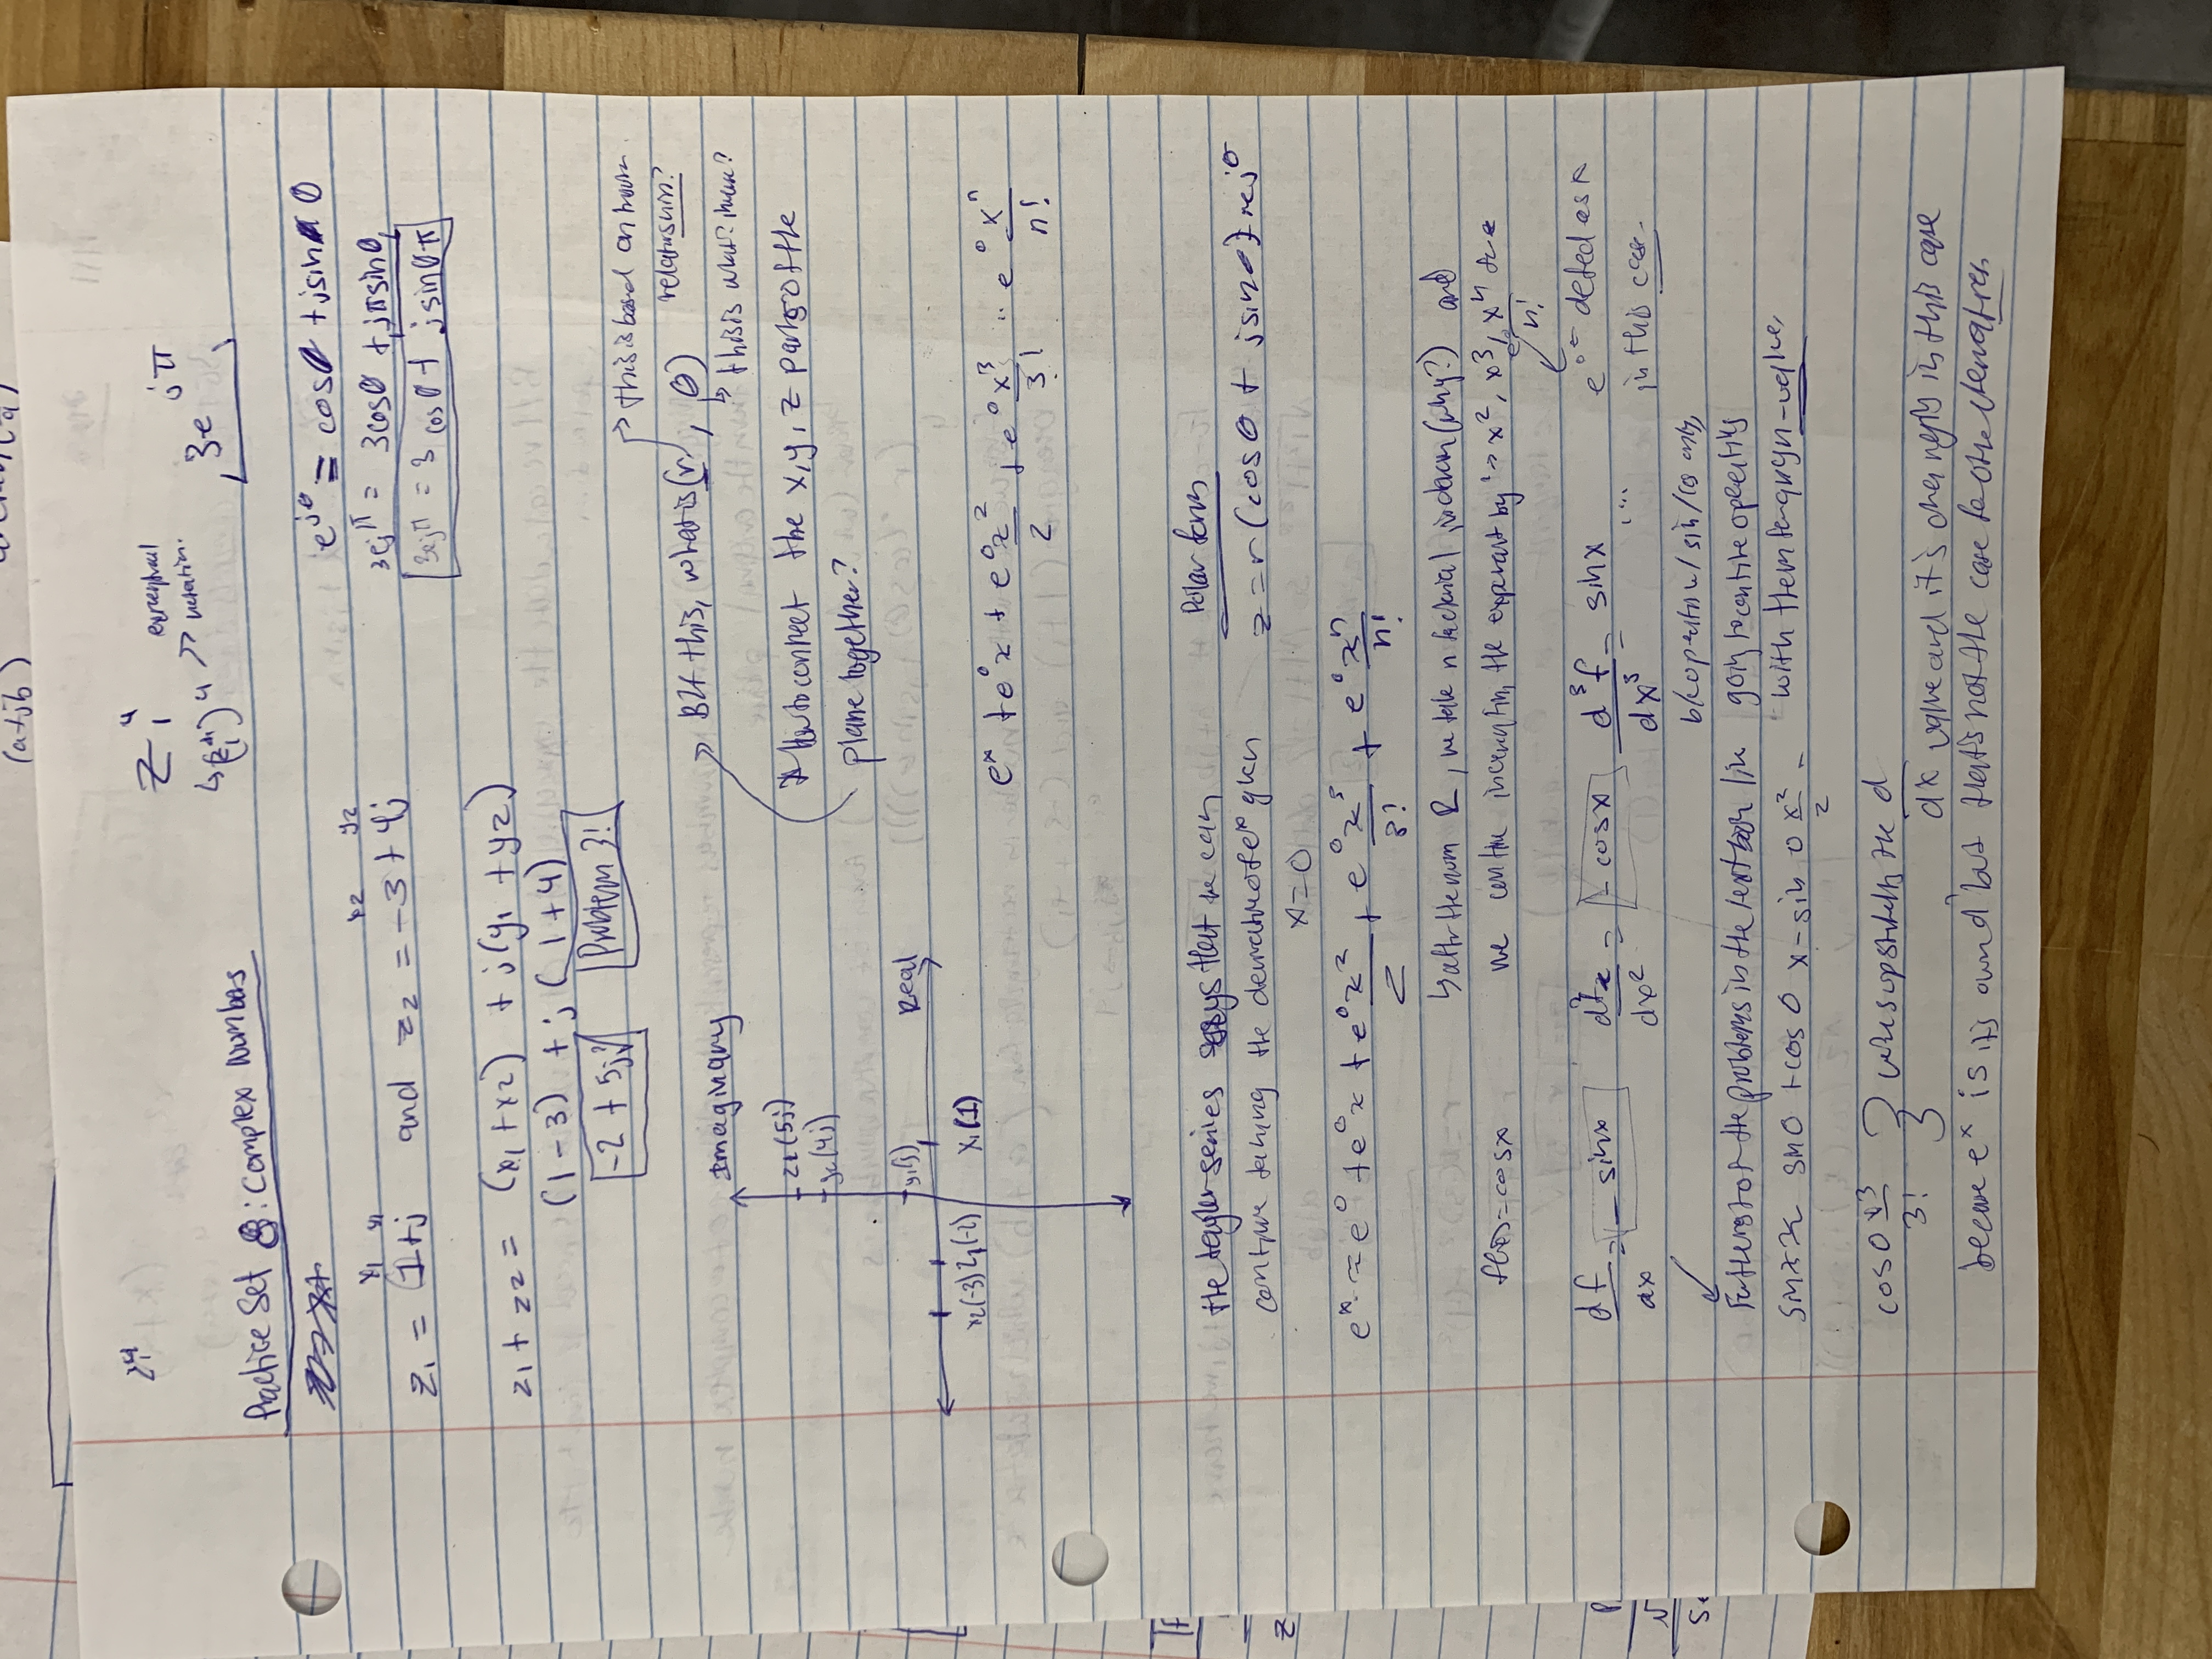 (a+jb)
z₁⁴
z₁⁴
exponential
notation.
3e^jπ
Practice Set 8: Complex Numbers
e^jθ = cosθ + jsin θ
x₁ y₁ x2 y2
z₁ = 1+j and z₂ = -3 + 4j
3ej^π = 3cosθ + jπsinθ
3ej^π = 3 cosθ + jsinθπ
z₁ + z2 = (x₁ + x2) + j(y₁ + y2)
(1-3) + j(1+4)
-2 + 5j
Problem 3!
this is based on
relationship?
Imaginary
But this, what is (r, θ)
this is what?
z₁(5j)
y₂(4j)
y₁(j)
* How to connect the x, y, z parts of the
plane together?
Real
x₂(-3) z₁(-2) x₁(1)
e^x + e^0 x + e^0 x^2/2 + e^0 x^3/3! .. e^0 x^n/n!
the taylor series says that we can
continue taking the derivative of e^x given
x=0
Polar form
z = r(cosθ + jsinθ) = rej^θ
e^x ≈ e^0 + e^0 x + e^0 x^2/2 + e^0 x^3/3! + e^0 x^n/n!
↳ after the num 2, we take n factorial in denom (why?) and
we continue the exponent by 1 → x^2, x^3, x^n/n!
f(x) = cosx
df/dx = - sinx d^2f/dx^2 = - cosx d^3f/dx^3 = sinx ....
e^0 = as x
in this case.
b/c operation w/ sin/cos only,
going to continue operating
with them for any n-value.
For the rest of the problems in the textbook like
sinx ≈ sin0 + cos0 x - sin 0 x^2/2 -
cos0 x^3/3! } the d/dx value and it's changing in this case
because e^x is its own d but that's not the case for other